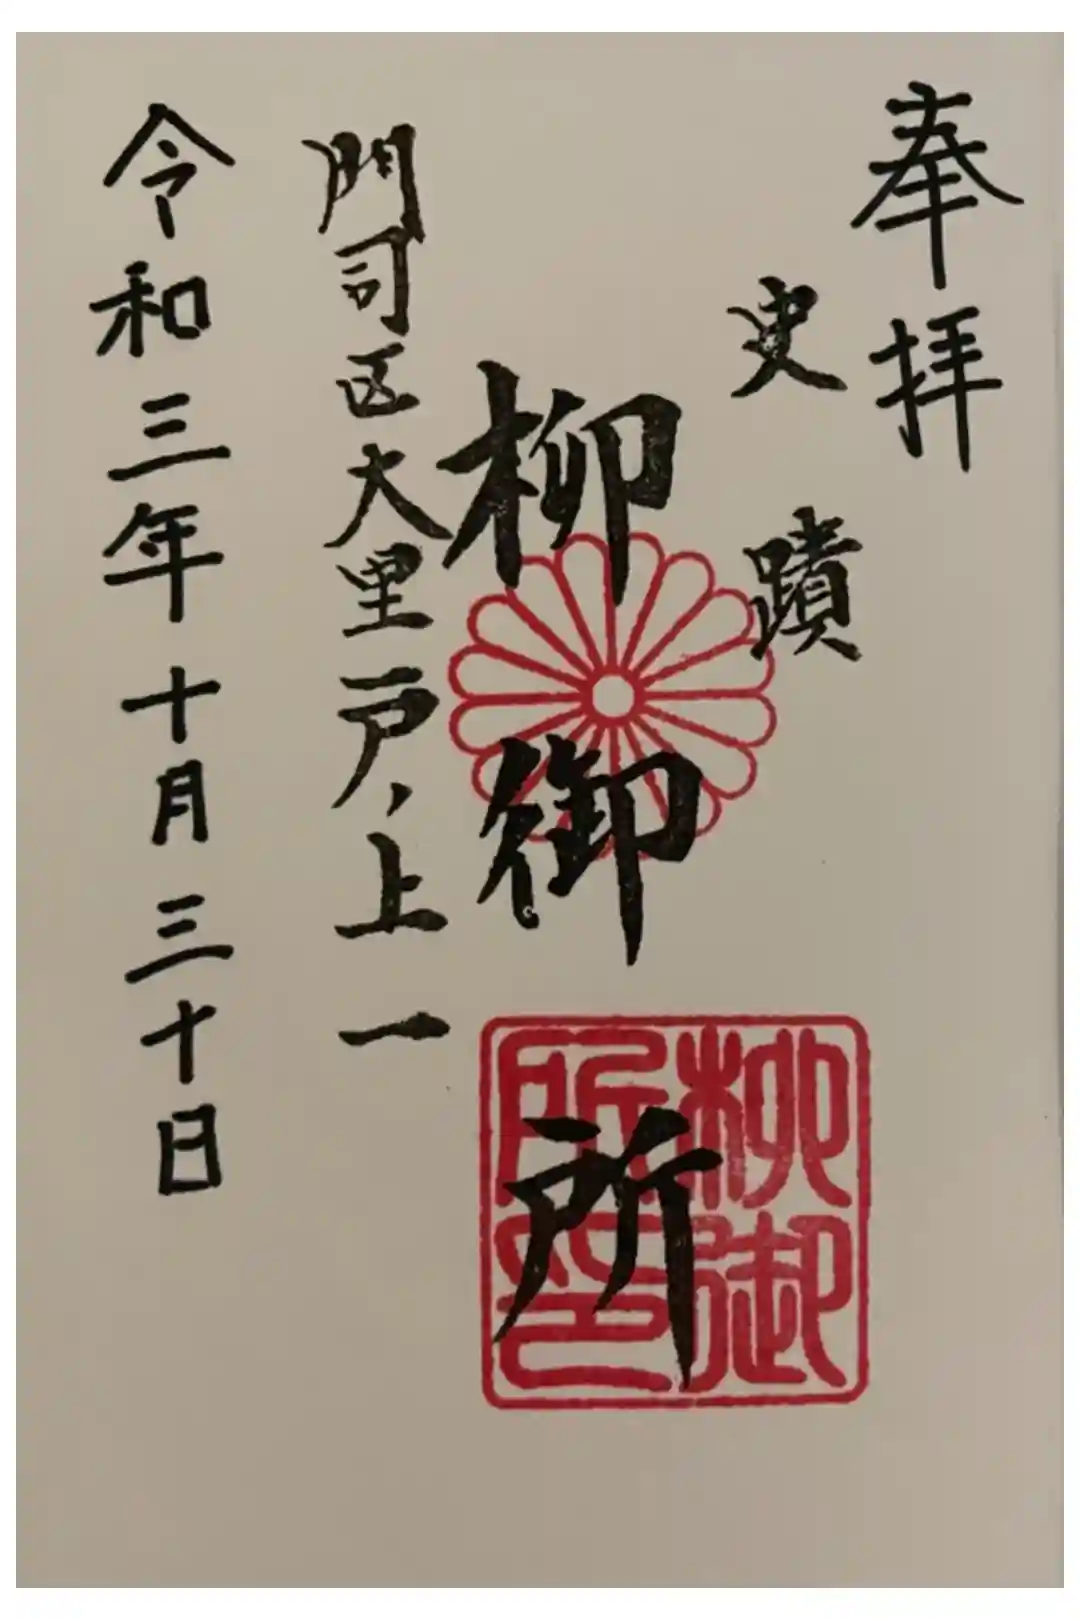 奉拝
史蹟
柳御所
門司区大里戸ノ上一
令和三年十月三十日
柳御所印